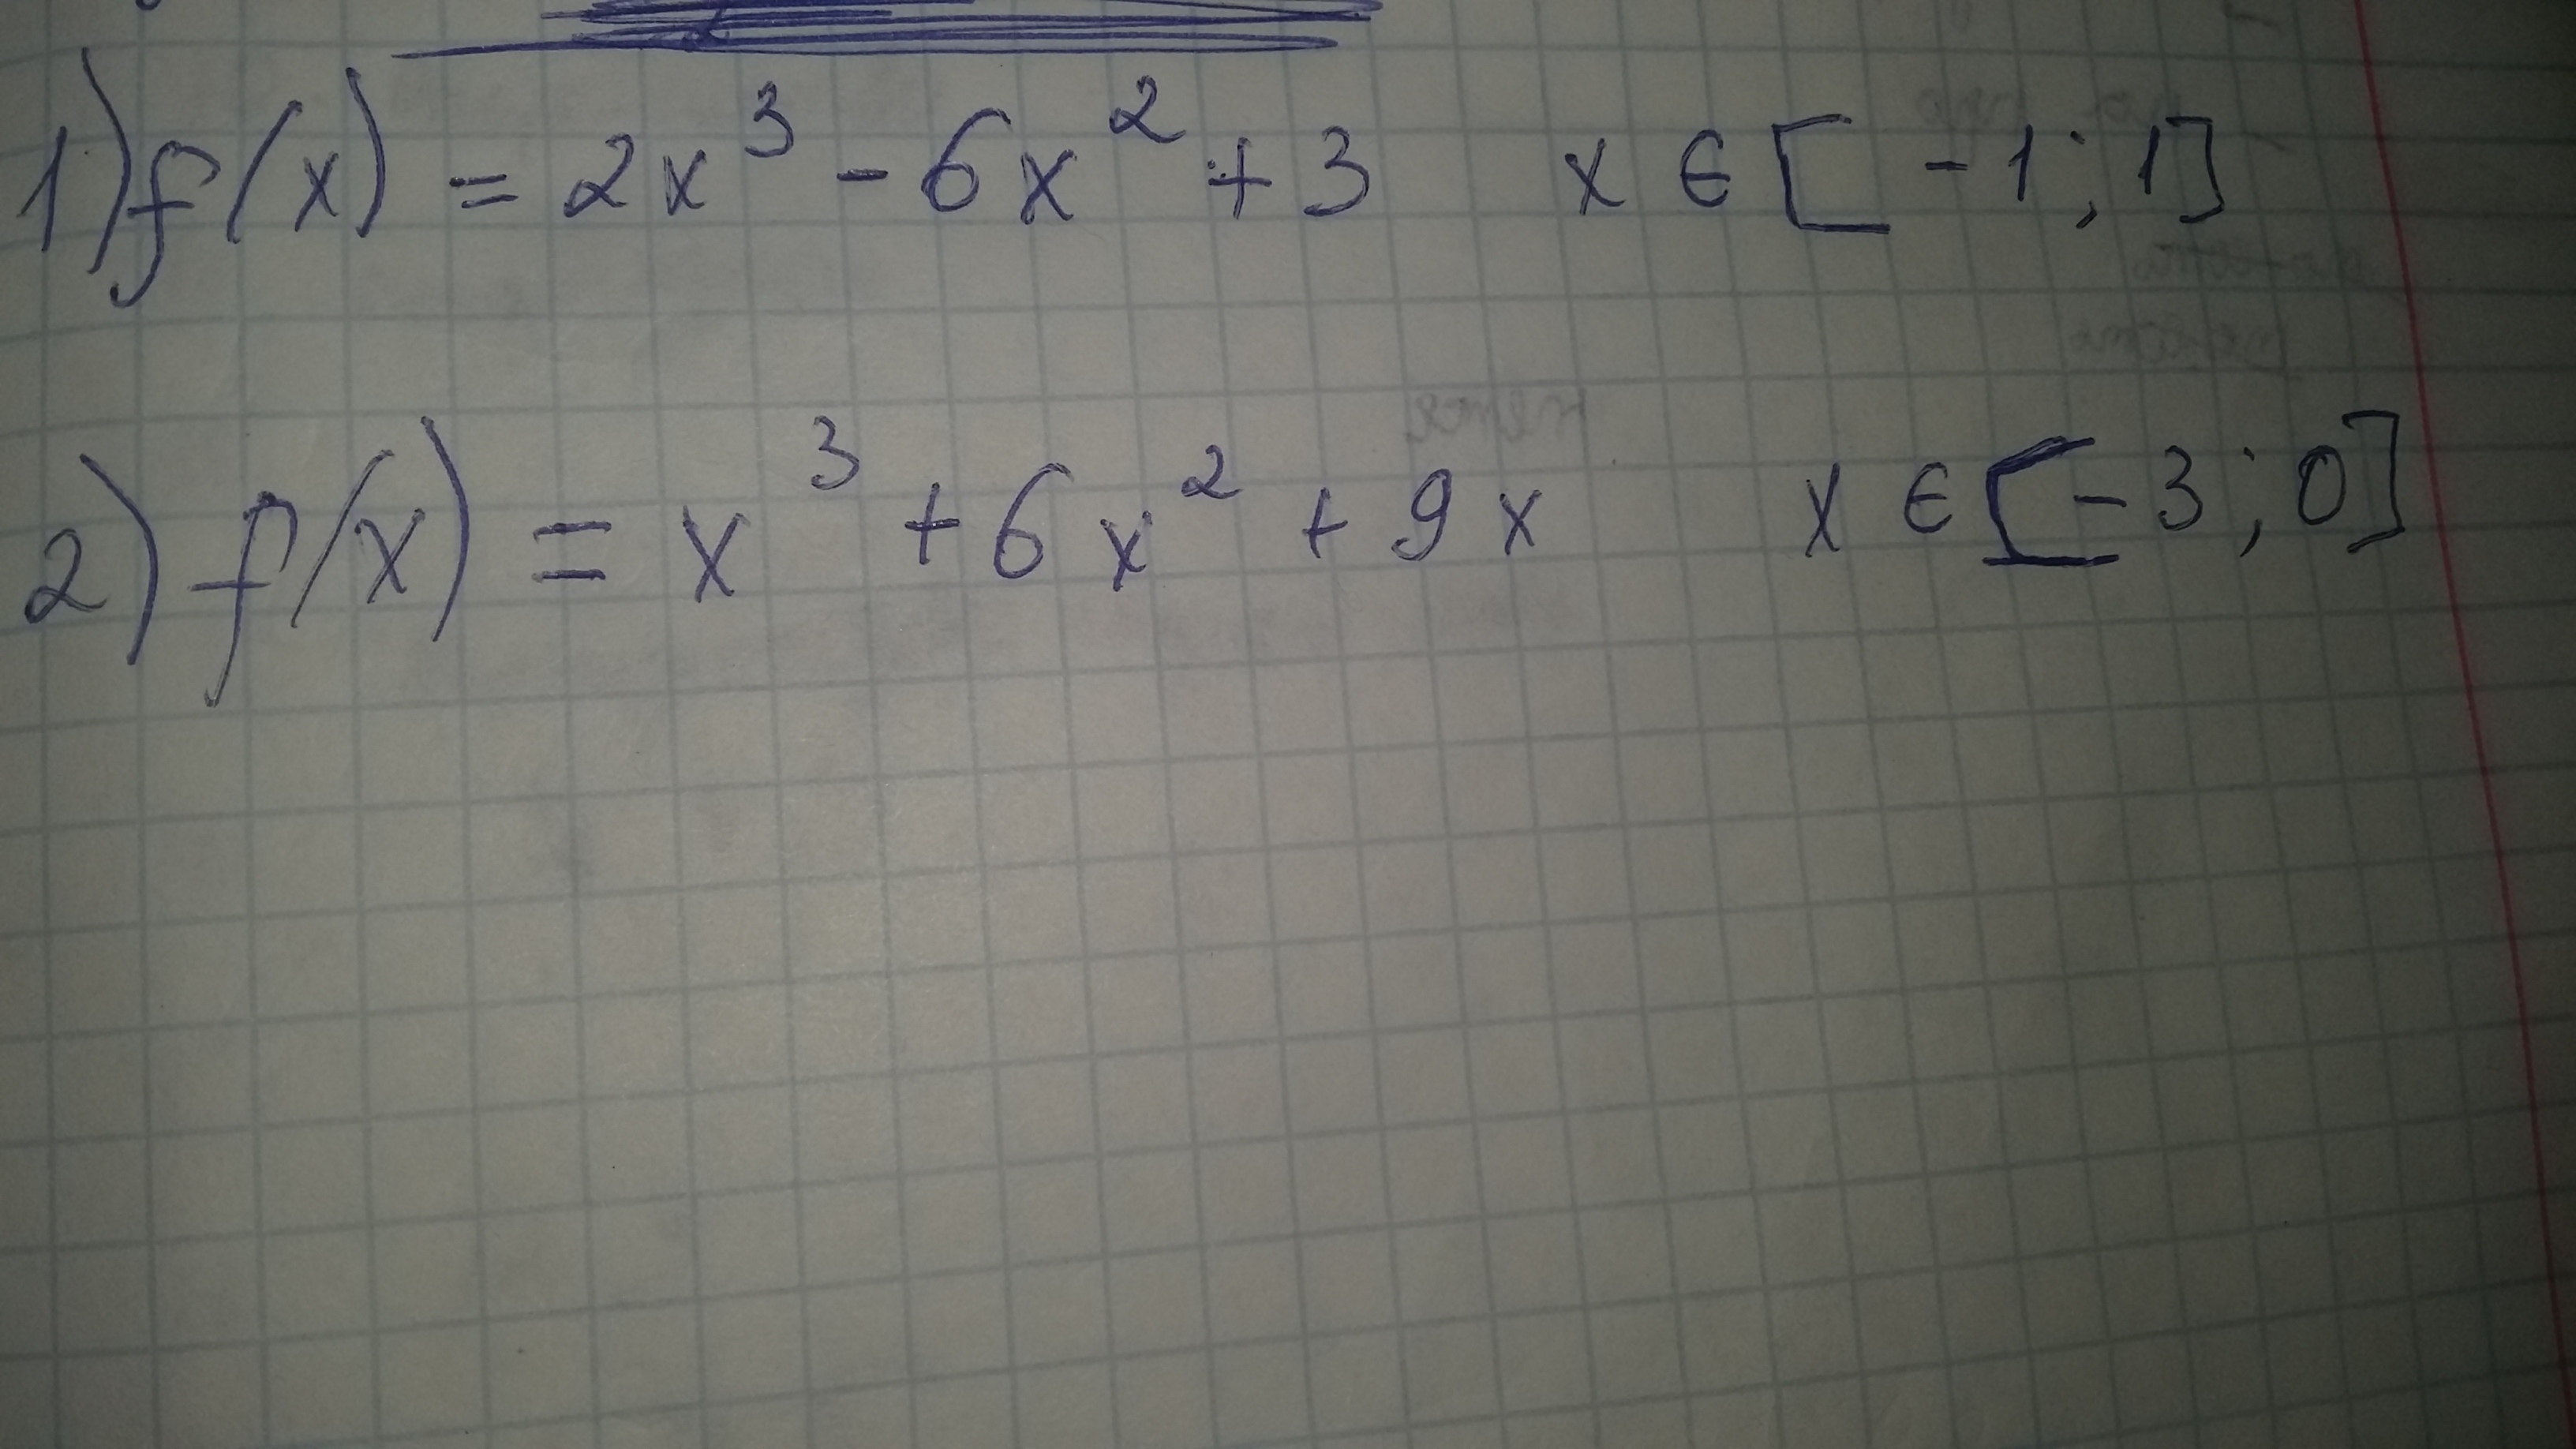 1) f(x) = 2x³ - 6x² + 3 x ∈ [-1; 1]
2) f(x) = x³ + 6x² + 9x x ∈ [-3; 0]